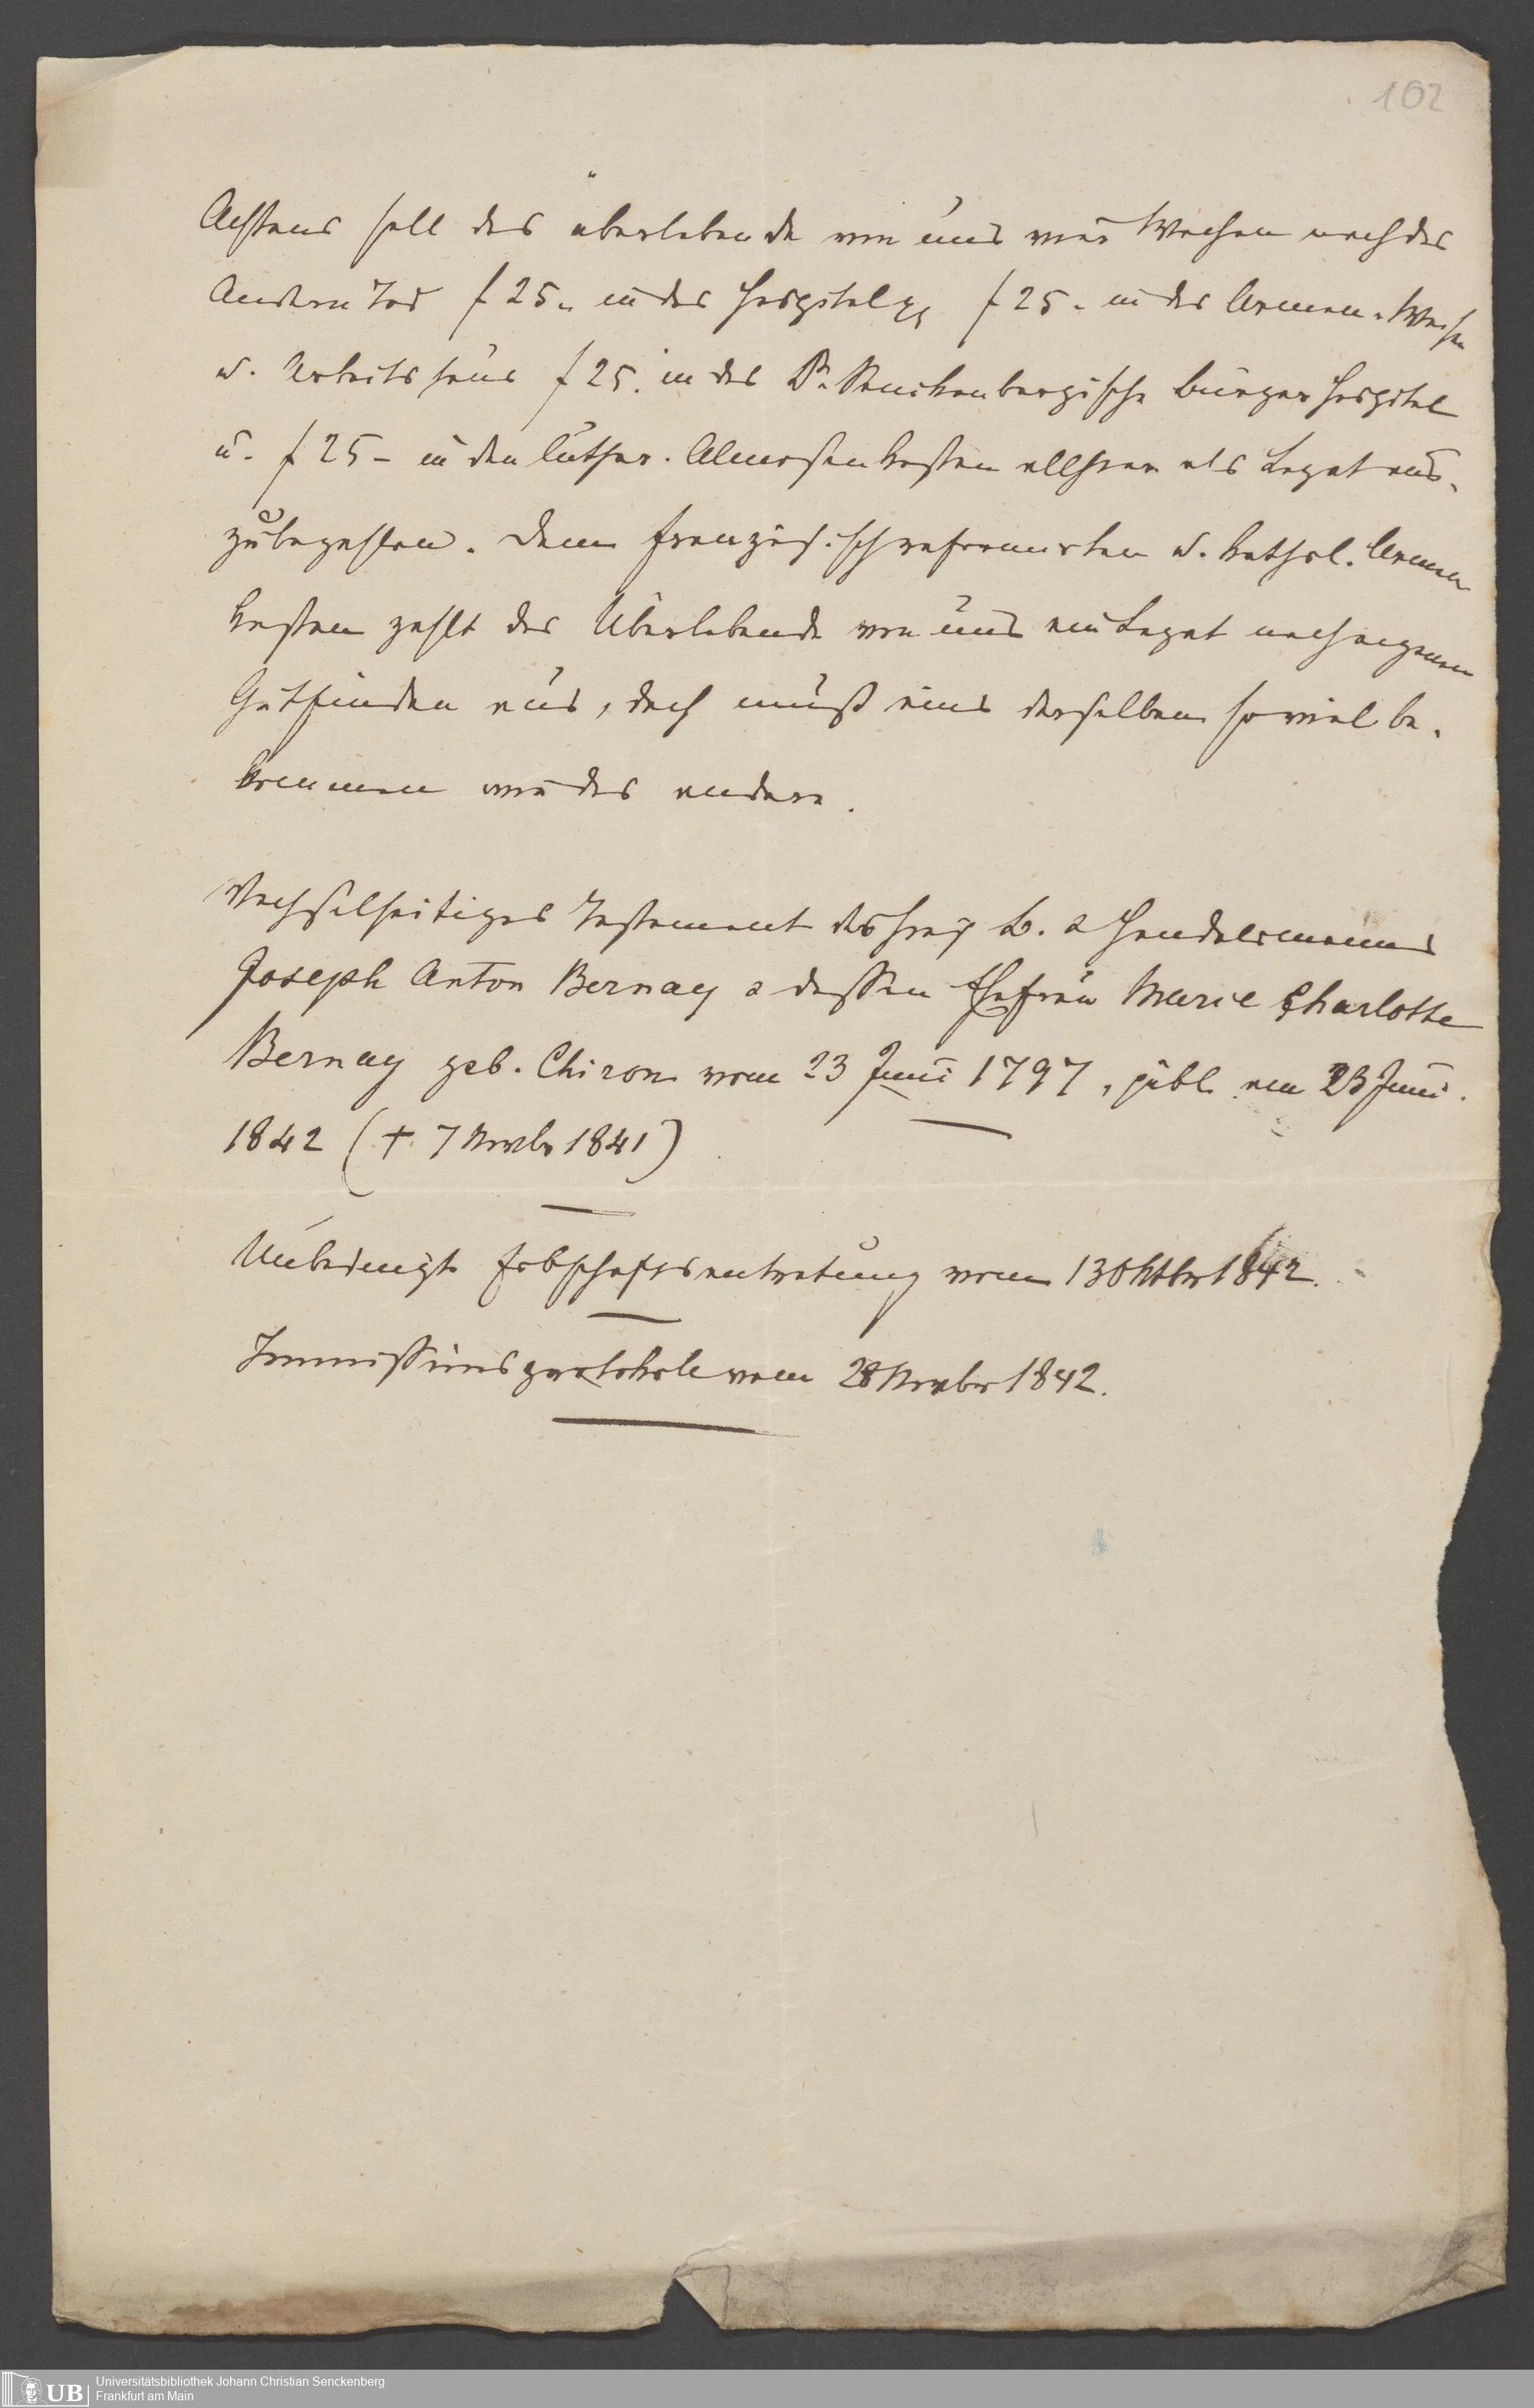 102
Achtens soll das überlebende von uns vier Wochen nach des
Andern Tod f 25. in das Hospital, f 25. in das Armen- Waisen
u. Arbeitshaus f 25. in das Dr. Senckenbergische Bürger Hospital
u. f 25 – in den luther. Almosenkasten allhier als Legat aus-
zubezahlen. Dem französisch reformirten u. kathol. Armen
kasten zahlt das Überlebende von uns ein Legat nach eigenem
Gutfinden aus, doch muß eins derselben so viel be-
kommen wie das andere.
Wechselseitiges Testament des hies. B. & Handelsmanns
Joseph Anton Bernay & dessen Ehefrau Marie Charlotte
Bernay geb. Chiron vom 23 Juni 1797, publ. am 23 Juni.
1842 († 7 Novbr 1841)
Unbedingte Erbschaftsantretung vom 13 Oktbr 1842.
Immissionsprotokoll vom 28 Novbr 1842.
UB
Universitätsbibliothek Johann Christian Senckenberg
Frankfurt am Main